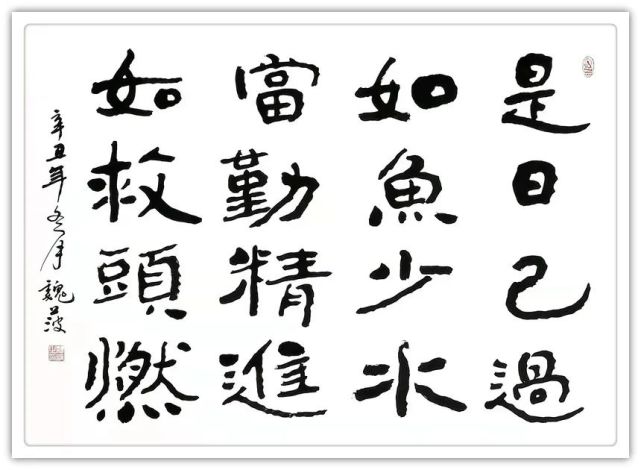 是日已過
如魚少水
當勤精進
如救頭燃
辛丑年冬月
魏菠